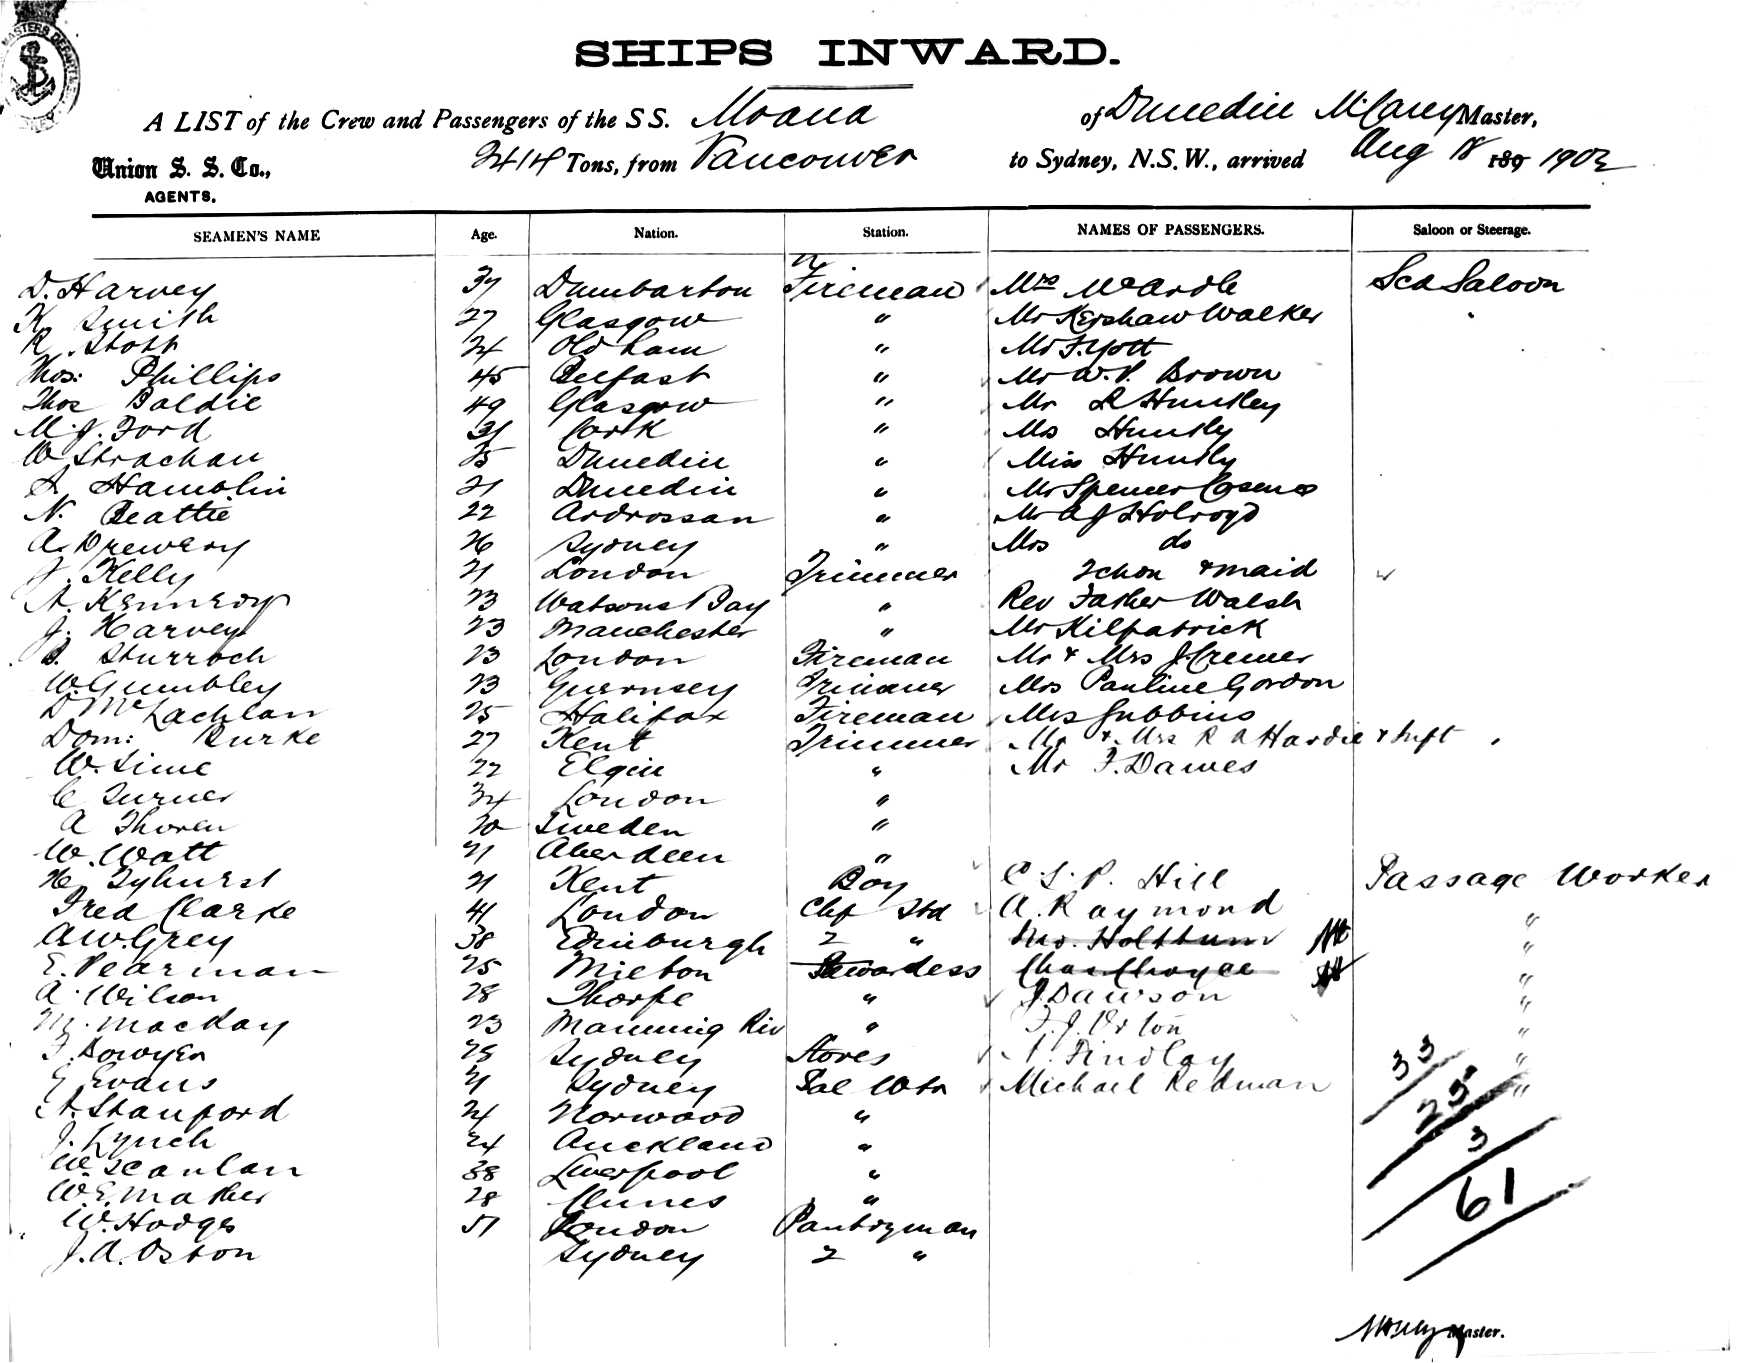 SHIPS INWARD.
A LIST of the Crew and Passengers of the S S. Moana of Dunedin M. Carey Master,
Union S. S. Co., 2414 Tons, from Vancouver to Sydney, N.S.W., arrived Aug 18 189 1902
AGENTS.
SEAMEN'S NAME Age. Nation. Station. NAMES OF PASSENGERS. Saloon or Steerage.
D. Harvey 37 Dumbarton Fireman Mrs McArdle Saloon
Smith 27 Glasgow " Mr Kershaw Walker
R. Stott 24 Oldham " Mr F. Yott
Thos: Phillips 45 Belfast " Mr W.P. Brown
Thos Baldie 49 Glasgow " Mr R Huntley
M. J. Ford 31 Cork " Mrs Huntly
W Strachan 35 Dunedin " Miss Huntly
Hamblin 21 Dunedin " Mr Spencer
N. Beattie 22 Ardrossan " Mr A J Holroyd
A. Drewery 26 Sydney " Mrs do
J. Kelly 21 London Trimmer & maid
A. Kennedy 23 Watsons Bay " Rev Father Walsh
J. Harvey 23 Manchester " Mr Kilpatrick
Sturroch 23 London Fireman Mr & Mrs J. Cremer
W. Gumbley 23 Guernsey Trimmer Mrs Pauline Gordon
D McLachlan 25 Halifax Fireman Mrs Gubbins
Dom: Burke 27 Kent Trimmer Mr & Mrs R A Hardie & Inft
W. Sime 22 Elgin " Mr F. Dawes
C Turner 34 London "
A Thoren 30 Sweden "
W. Watt 21 Aberdeen "
Tyhurst 21 Kent Boy C. S. P. Hill Passage Worker
Fred Clarke 41 London Chf Std A. Raymond "
A W. Grey 38 Edinburgh 2 " Holttum "
E. Pearman 25 Milton Stewardess Chas "
A. Wilson 28 Thorpe " J. Dawson "
M. MacKay 23 Manning Riv " F. J. Orton "
F. Bowyer 25 Sydney Stores A. Findlay "
E Evans 21 Sydney Sal Wtr Michael Redman "
A. Stanford 24 Norwood "
J. Lynch 24 Auckland "
W. Scanlan 38 Liverpool "
W. E. Maher 28 Clunes "
W. Hodges 51 London Pantryman
J. A. Oston Sydney 2 "
33
25
3
61
Master.